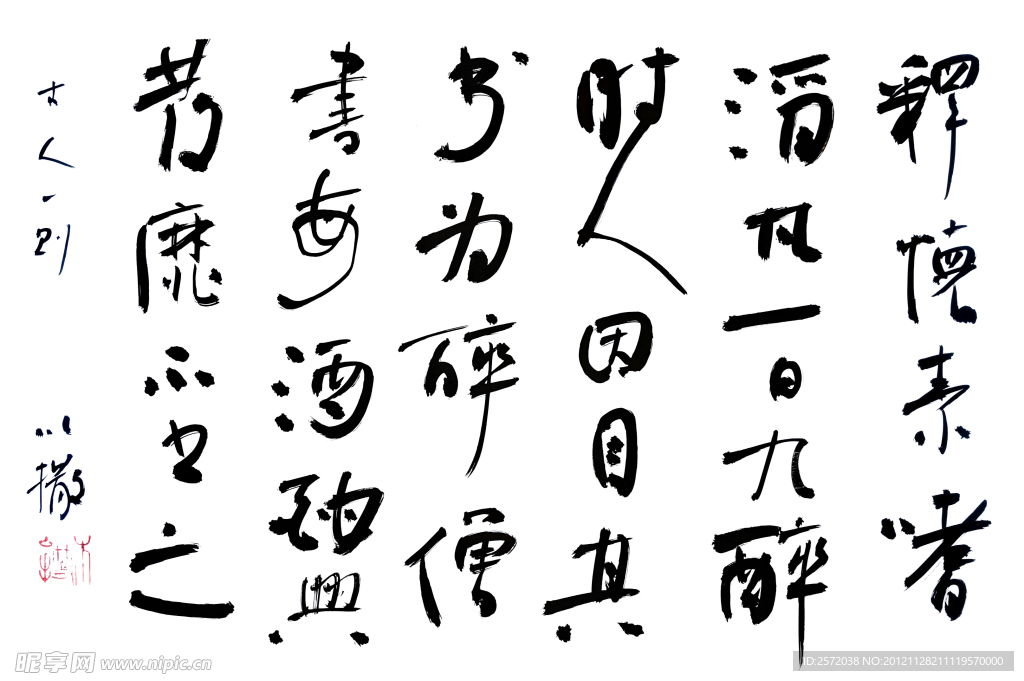 釋懷素嗜
酒凡一日九醉
时人因目其
书为醉僧
書每酒酣興
發靡不书之
古人一则
昵享网 www.nipic.cn
ID:2572038 NO:20121128211119570000